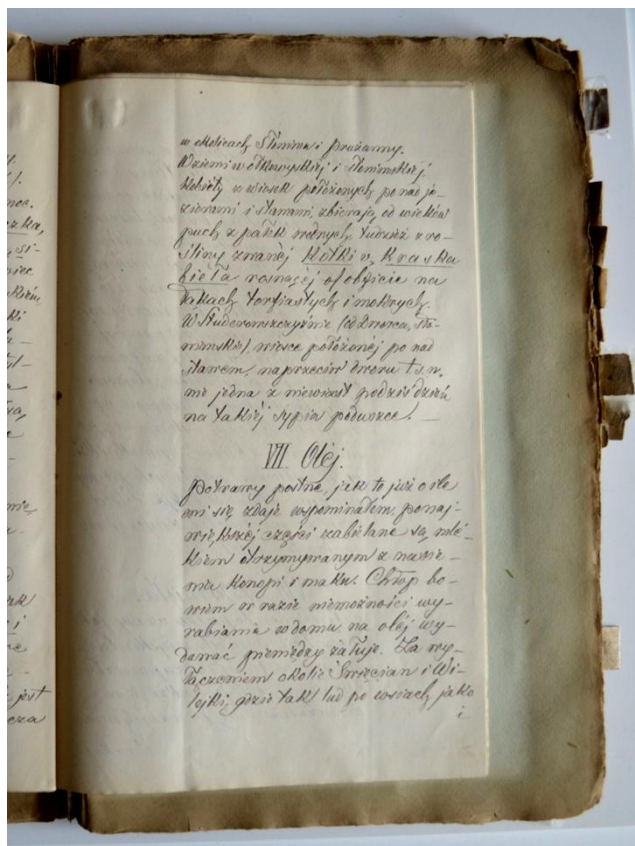 w okolicach Słonima i Prużanny.
W ziemi wołkowyskiej i słonimskiej
kobiéty w wiosek położonych ponad je-
ziorami i stawami, zbierają od wieków
puch z pałek wodnych, tudzież z ro-
śliny zwanéj Kotki v. Kraska
biéła rosnącéj obficie na
łąkach torfiastych i mokrych.
W Studerowszczyźnie (od Dworca, sło-
nimskie) wiosce położonéj po nad
stawem, naprzeciw dworu t. n.
nie jedna z niewiast podziś dzień
na takiéj sypia poduszce. —
VII. Oléj.
Potrawy postne, jak to już o ile
mi się zdaje wspominałem, ponaj-
większéj części zabielane są mlé-
kiem otrzymywanym z nasie-
nia konopi i maku. Chłop bo-
wiem w razie niemożności wy-
rabiania w domu na oléj wy-
dawać pieniędzy żałuje. Za wy-
łączeniem okolic Święcian i Wi-
lejki, gdzie tak lud po wsiach jako
i